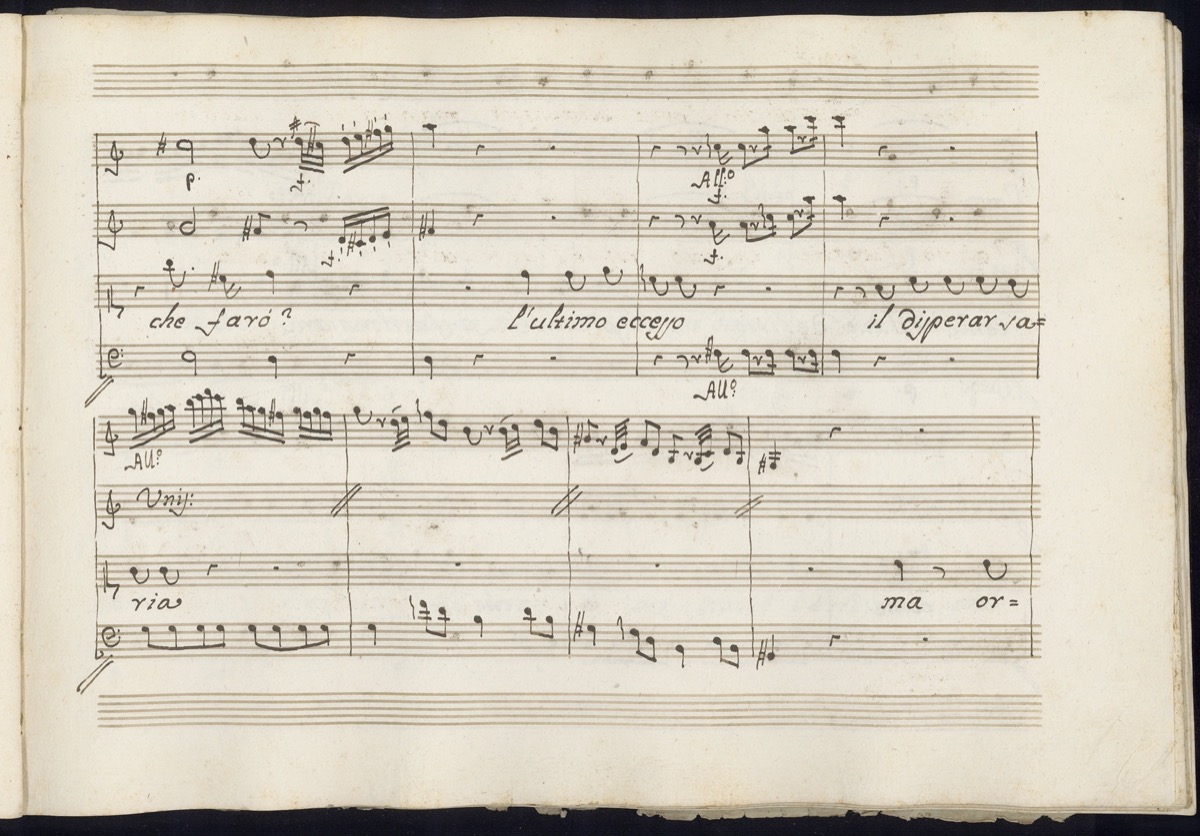 p. f.
All:º
f.
f. f.
che farò? l'ultimo eccesso il disperar sa=
All:º
All:º
Unis:
ria ma or=